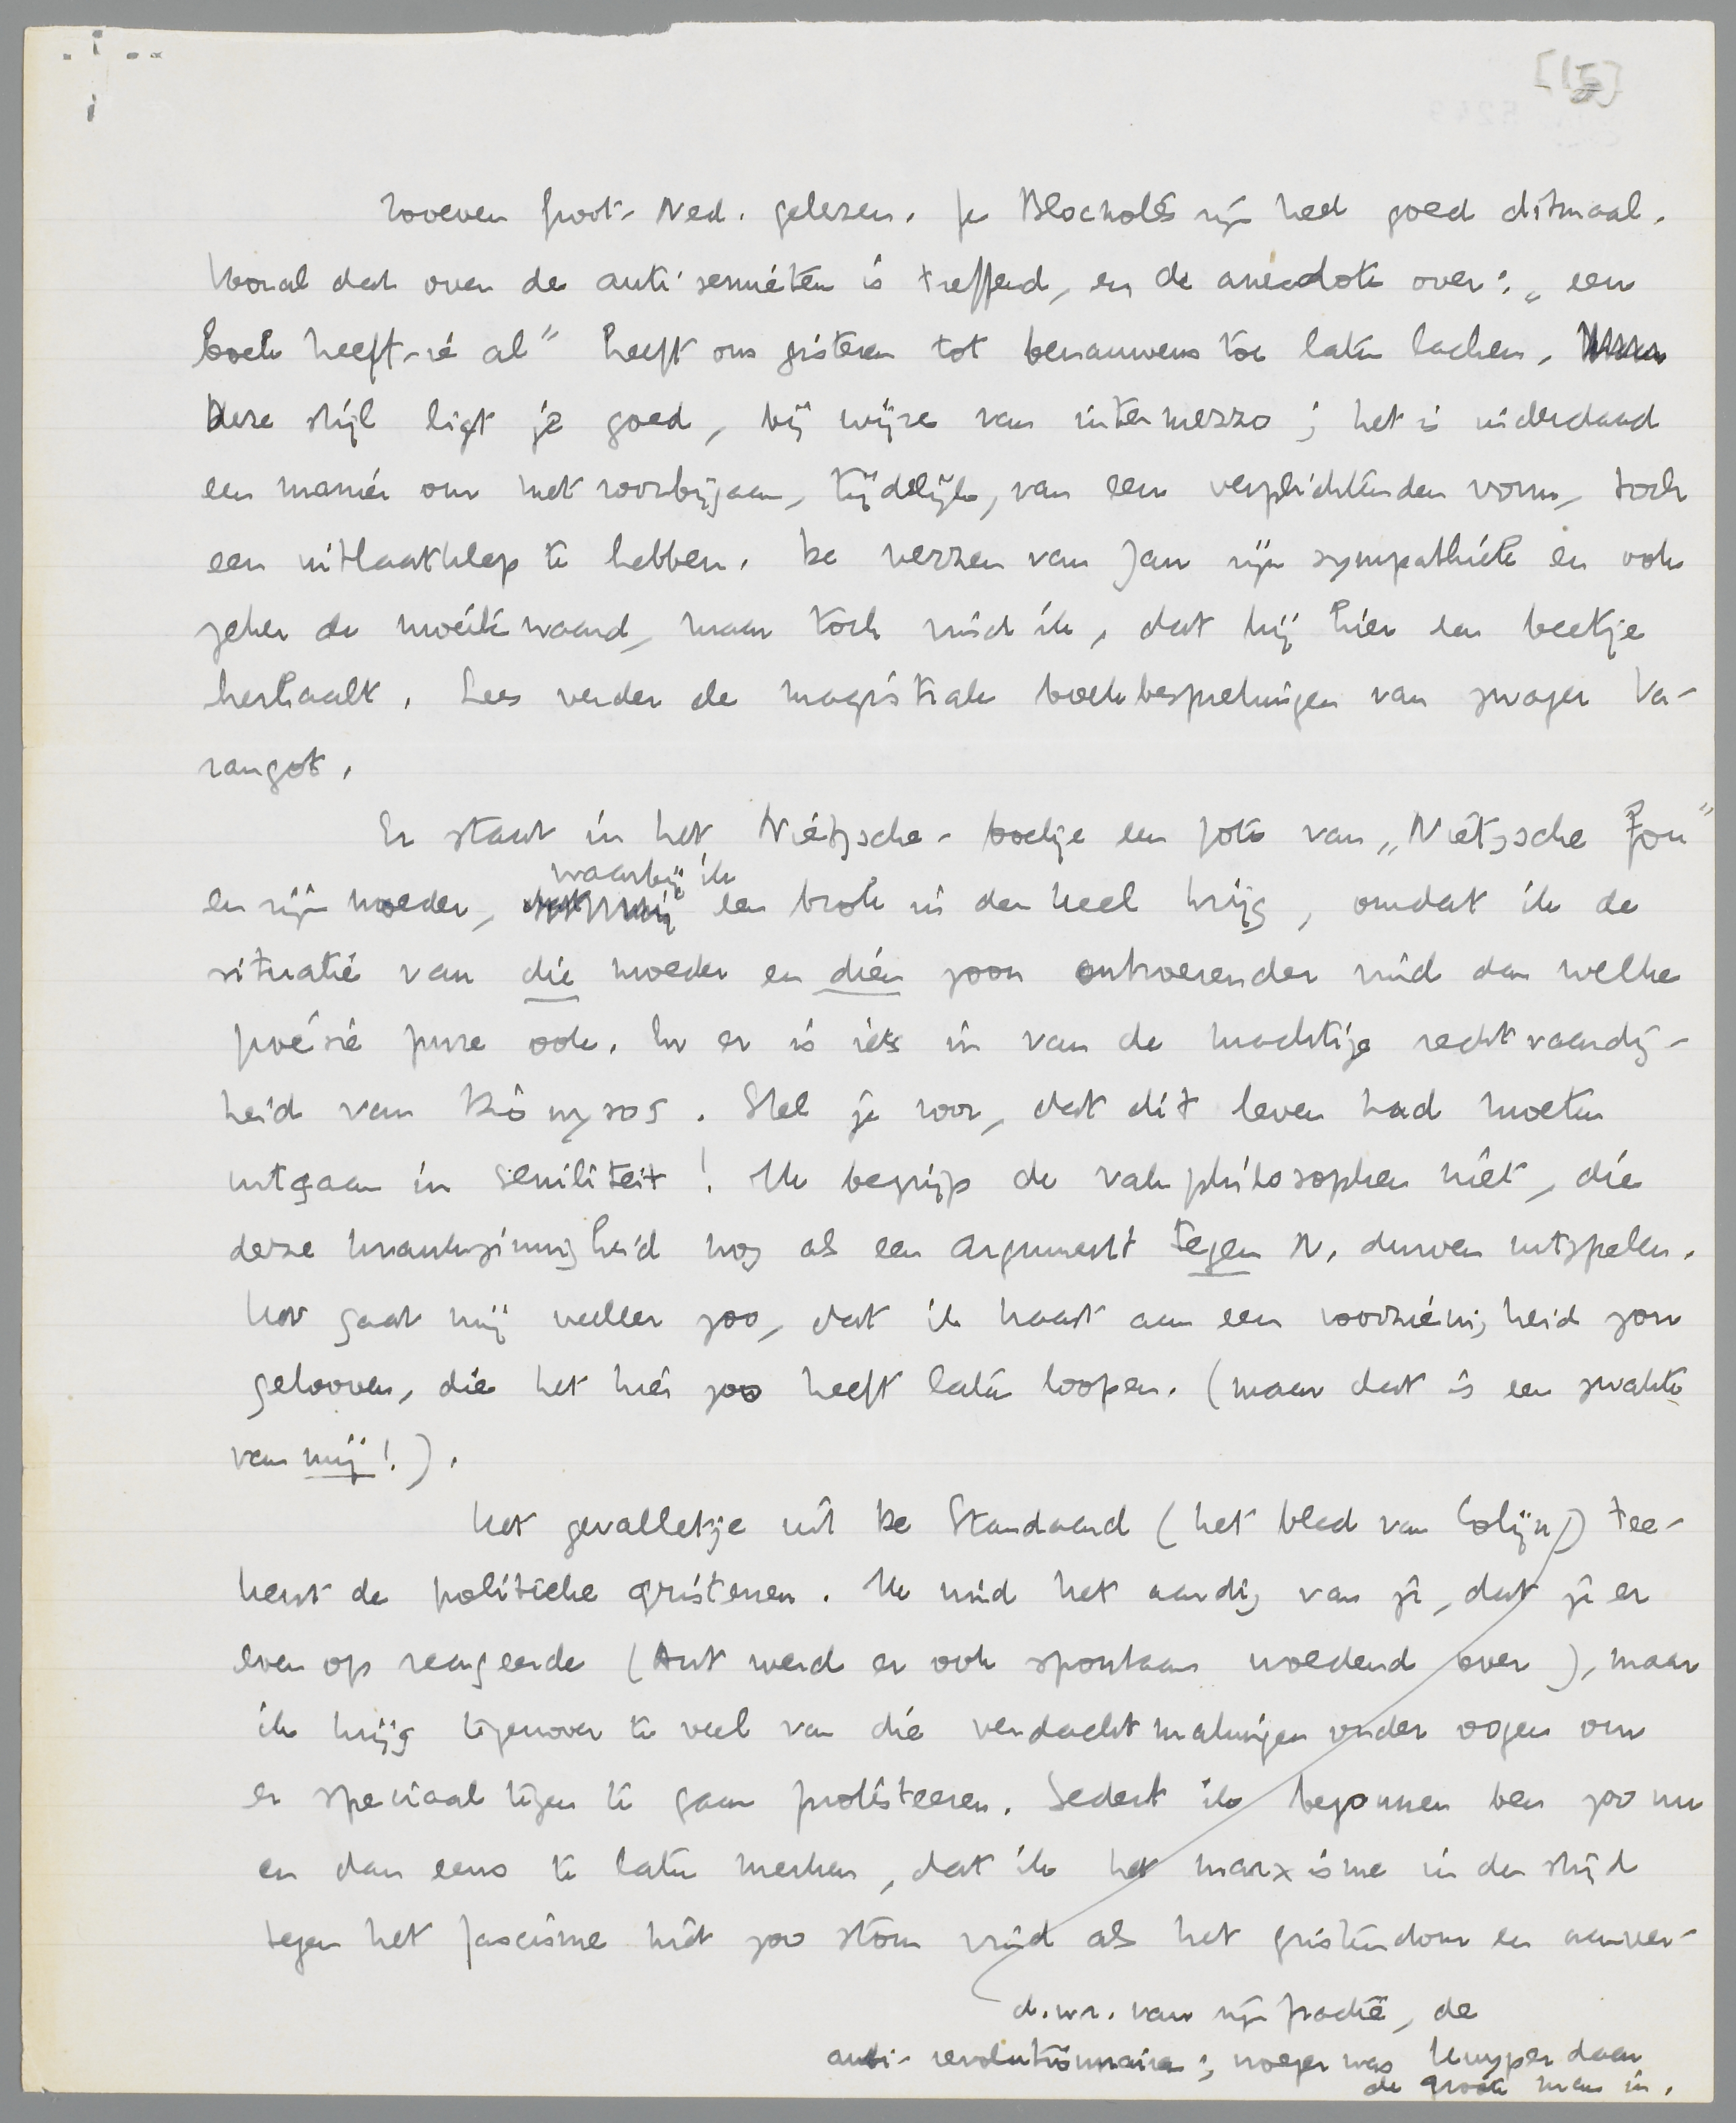 [15]
Zooeven Groot-Ned. gelezen. Je Blocnotes zijn heel goed ditmaal.
Vooral dat over de anti-semieten is treffend, en de anecdote over: „een
boek heeft-ie al” heeft ons gisteren tot benauwens toe laten lachen.
Deze stijl ligt je goed, bij wijze van intermezzo; het is inderdaad
een manier om met voorbijgaan, tijdelijk, van een verplichtenden vorm, toch
een uitlaatklep te hebben. De verzen van Jan zijn sympathiek en ook
zeker de moeite waard, maar toch vind ik, dat hij hier een beetje
herhaalt. Lees verder de magistrale boekbesprekingen van zwager Va-
rangot.
Er staat in het Nietzsche-boekje een foto van „Nietzsche fou”
en zijn moeder, waarbij ik een brok in de keel krijg, omdat ik de
situatie van die moeder en dien zoon ontroerender vind dan welke
poésie pure ook. En er is iets in van de machtige rechtvaardig-
heid van Dionysos. Stel je voor, dat dit leven had moeten
uitgaan in seniliteit! Ik begrijp de vakphilosophen niet, die
deze krankzinnigheid nog als een argument tegen N. durven uitspelen.
Het gaat mij veeleer zoo, dat ik haast aan een voorzienigheid zou
gelooven, die het hier zoo heeft laten loopen. (maar dat is een zwakte
van mij!).
Het gevalletje uit De Standaard (het blad van Colijn) tee-
kent de politieke gristenen. Ik vind het aardig van je, dat je er
even op reageerde (Ant werd er ook spontaan woedend over), maar
ik krijg tegenover te veel van die verdachtmakingen onder oogen om
er speciaal tegen te gaan protesteeren. Sedert ik begonnen ben zoo nu
en dan eens te laten merken, dat ik het marxisme in den strijd
tegen het fascisme niet zoo stom vind als het gristendom en aanver-
d.w.z. van zijn fractie, de
anti-revolutionnaire; vroeger was Kuyper daar
de groote man in.